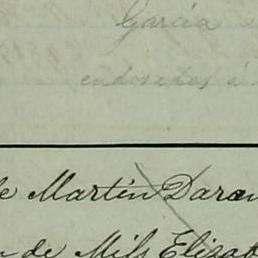 Garcia
endosados á
de Martin Daran
de Miss Elizab